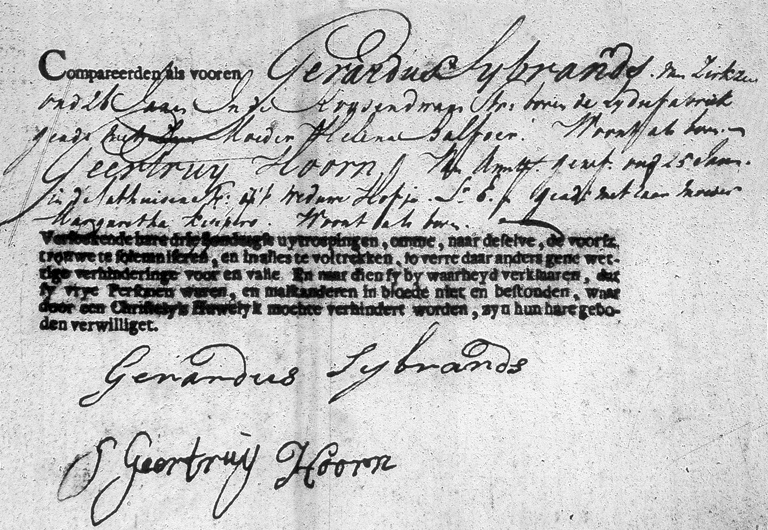 Compareerden als vooren Gerardus Sybrands. van Zirkzee
oud 26 Jaar, In de Huysend boven de Zydefabriek
geads Moeder Helena Balfoer. Woont als boven
Geertruy Hoorn, Van Amst. geref. oud 25 Jaar.
in de Cathuisen Str: in 't weduwe Hofje. geads met haar moeder
Margaretha Kuypers. Woont als boven
Versoekende hare drie Sondaegse uytroepingen, omme, naar deselve, de voorsz.
trouwe te solemniseren, en in alles te voltrekken, so verre daar anders gene wet-
tige verhinderinge voor en valle. En naar dien sy by waarheyd verklaaren, dat
sy vrye Personen waren, en malkanderen in bloede niet en bestonden, waar
door een Christelyk Huwelyk mochte verhindert worden, zyn hun hare gebo-
den verwilliget.
Gerardus Sybrands
Geertruy Hoorn